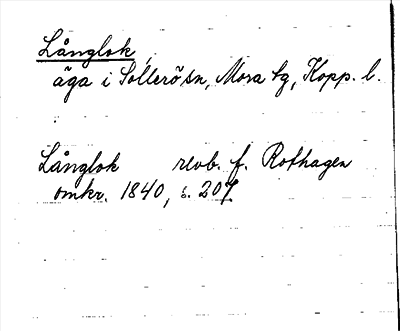 Långlok,
äga i Sollerö sn, Mora tg, Kopp. l.
Långlok revb. f. Rothagen
omkr. 1840, s. 207.